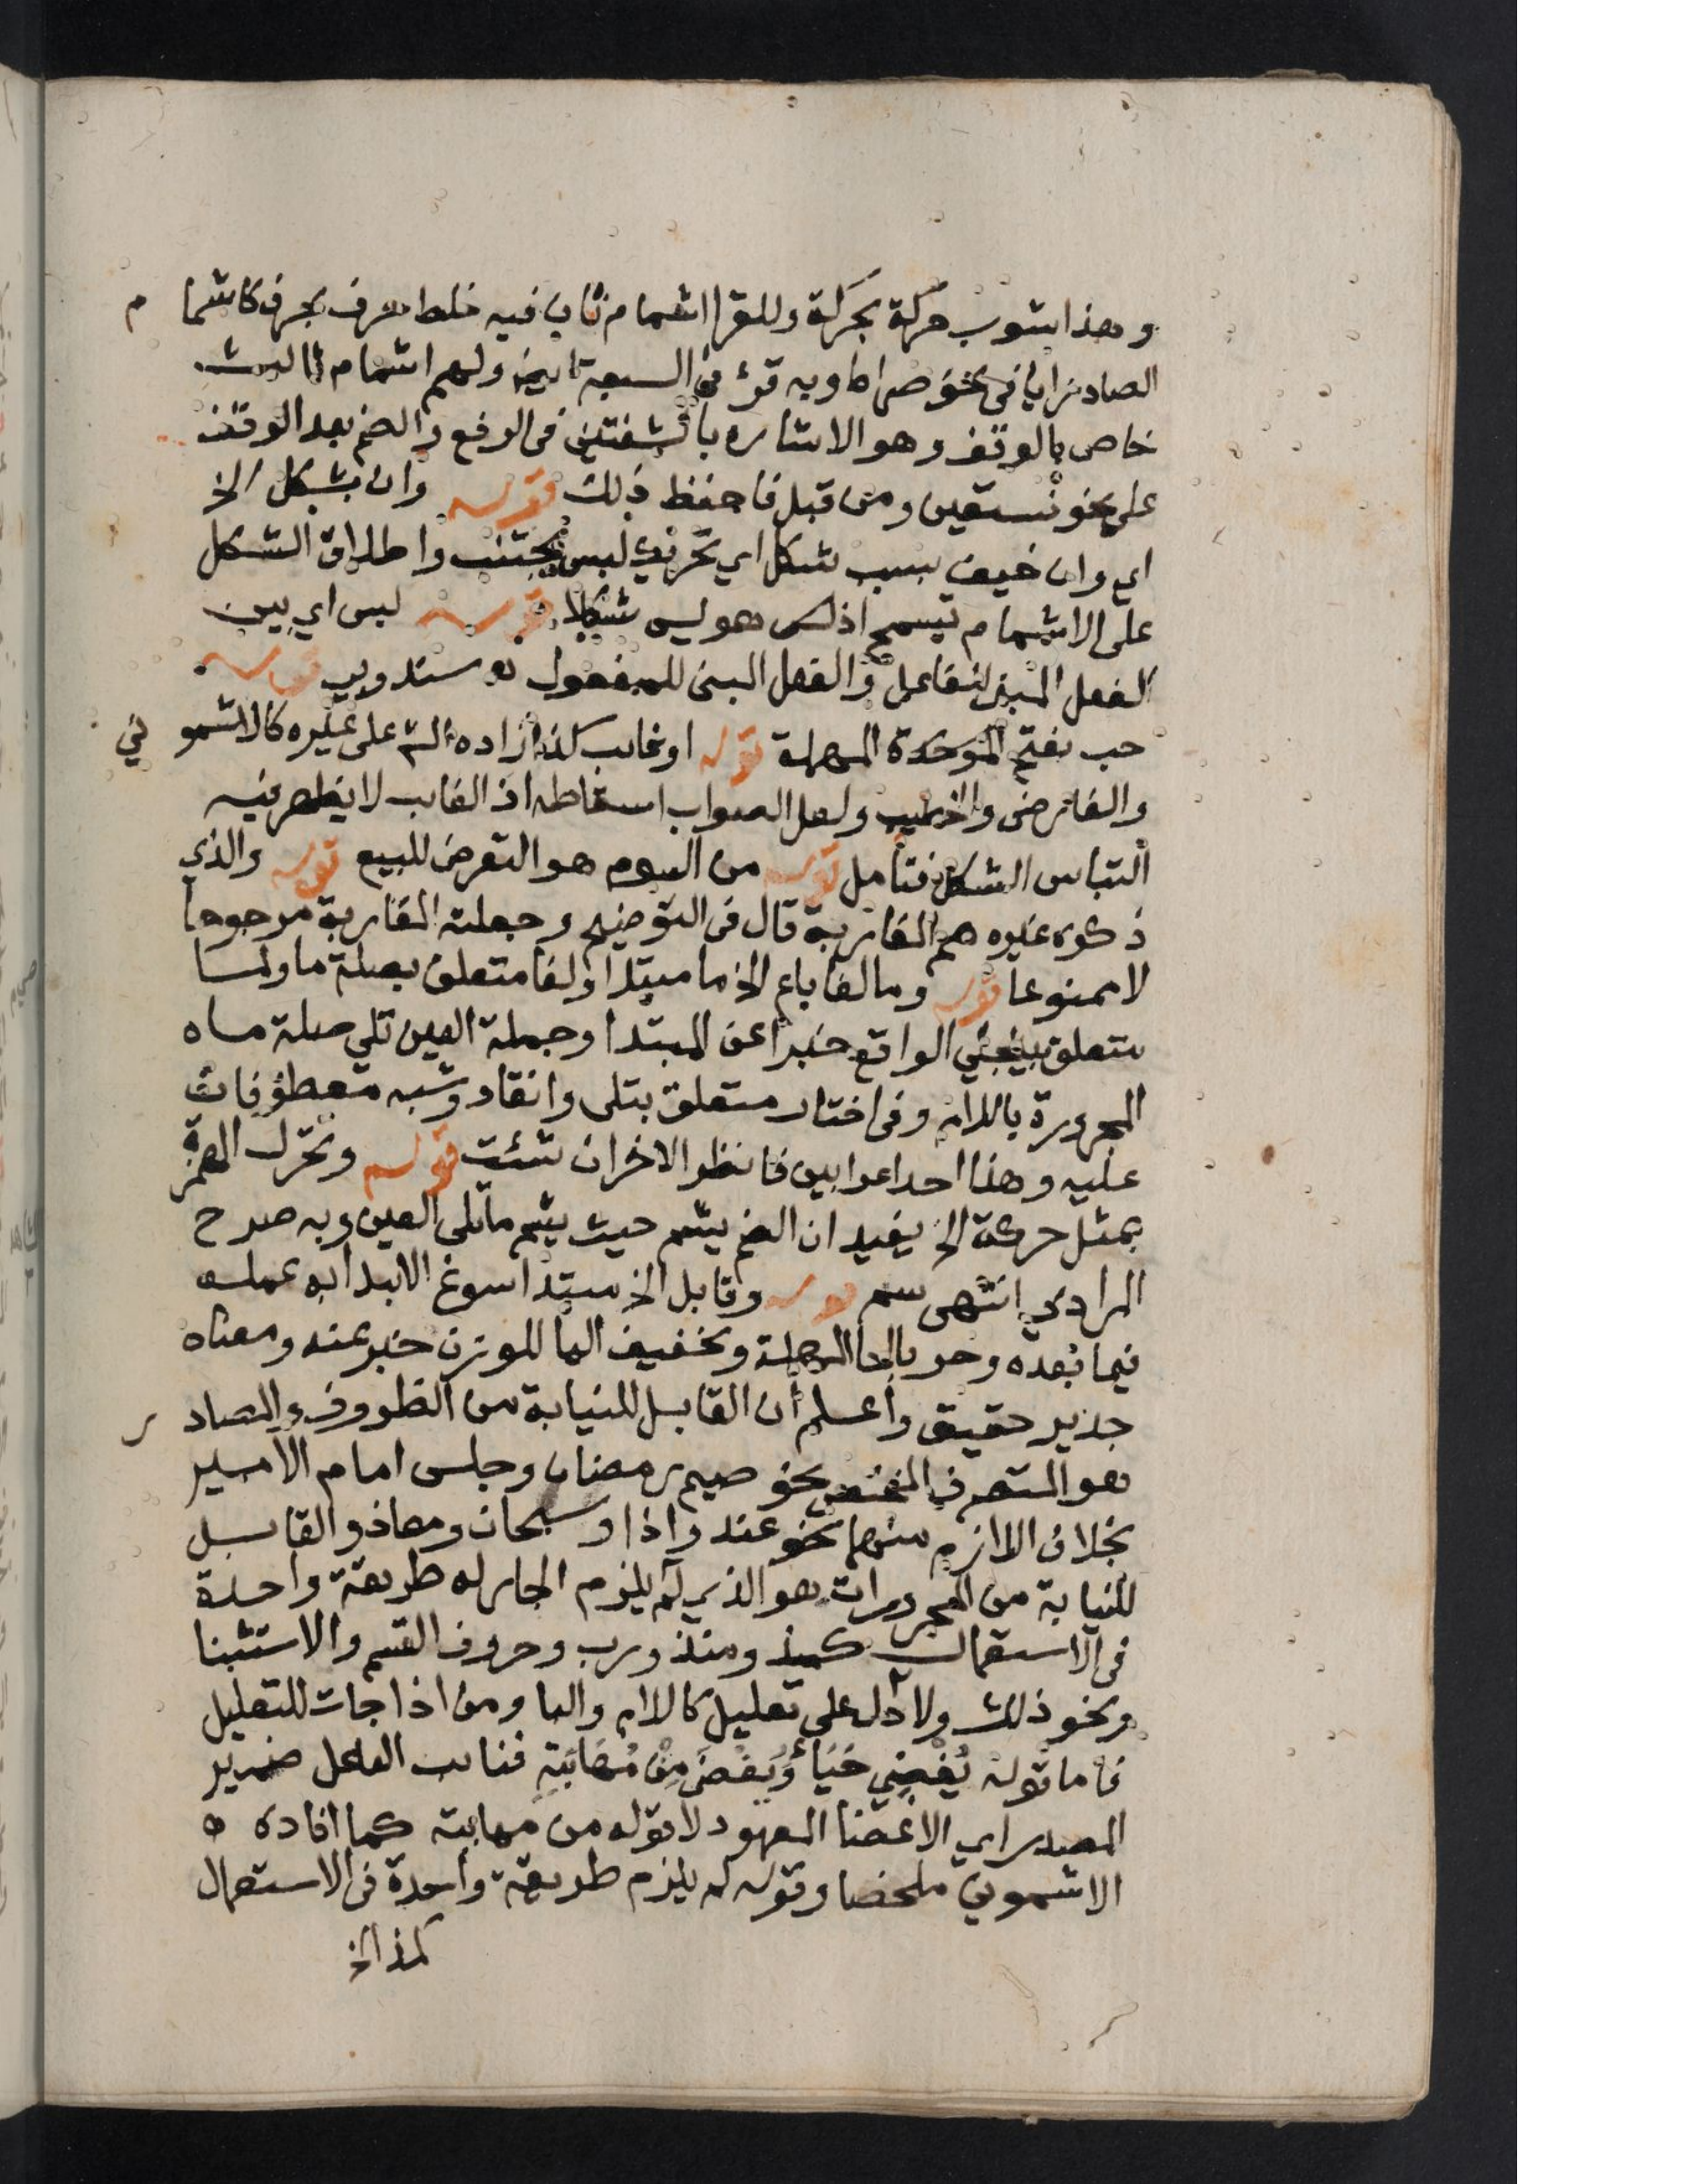 وهذا شوب حركة بحركة وللقرا اشمام ثان فيه خلط حرف بحرف كاشما م
الصاد زايا في نحو صراط وبه قرئ في السبعة ايضا ولهم اشمام ثالث
خاص بالوقف وهو الاشاره بالشفتين في الرفع والضم بعد الوقف
على نحو نستعين ومن قبل فاحفظ ذلك قوله وان بشكل الخ
اي وان خيف بسبب شكل اي تحريك لبس يجتنب واطلاق الشكل
على الاشمام تسمح اذ ليس هو شكلا قوله لبس اي بين
الفعل المبني للفاعل والفعل المبني للمفعول سندوبي قوله
حب بفتح الموحدة المهملة قوله او غايب كذا زاده الش على غيره كالاشمو ني
والفارضي والخطيب ولعل الصواب اسقاطه اذ الغايب لا يظهر فيه
التباس الشكل فتأمل قوله من السوم هو التعرض للبيع قوله والذي
ذكره غيره هم المغاربة قال في التوضيح وجعلته المغاربة مرجوحا
لا ممنوعا قوله وما لفا باع الخ ما مبتدا ولفا متعلق بصلة ما ولما
متعلق بينجلي الواقع خبرا عن المبتدا وجملة العين تلي صلة ما ه
المجرورة باللام وفي اختار متعلق بتلي وانقاد وشبه معطوفان
عليه وهذا احد اعرابين فانظر الاخر ان شئت قوله وتحرك الهمزة
بمثل حركة الخ يفيد ان الضم يشم حيث يشم ما تلي العين وبه صرح
المرادي انتهى سم قوله وقابل الخ مبتدا سوغ الابتدا به عمله
فيما بعده وحر بالحا المهملة وتخفيف الرا للوزن خبر عنه ومعناه
جدير حقيق واعلم ان القابل للنيابة من الظروف والمصاد ر
هو المتصرف المختص نحو صيم رمضان وجلس امام الامير
بخلاف اللازم منهما نحو عند واذا وسبحان ومعاذ والقابل
للنيابة من المجرورات هو الذي لم يلزم الجار له طريقة واحدة
في الاستعمال كمذ ومنذ ورب وحروف القسم والاستثنا
ونحو ذلك ولا دل على تعليل كاللام والبا ومن اذا جات للتعليل
فاما قوله يُغضِي حَيَاءً وَيُغضَى مِنْ مَهَابَتِهِ فنايب الفاعل ضمير
المصدر اي الاغضا المعهود لا قوله من مهابته كما افاده ه
الاشموني ملخصا وقوله لم يلزم طريقة واحدة في الاستعمال
كمذ الخ